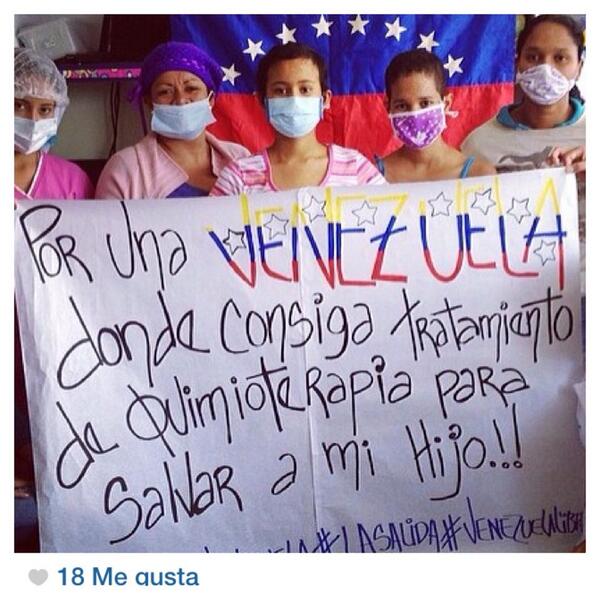 Por una VENEZUELA
donde consiga tratamiento
de quimioterapia para
salvar a mi hijo!!
#LASALIDA#VENEZUELA
18 Me gusta